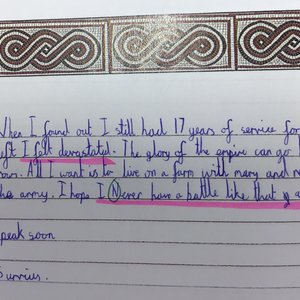 When I found out I still had 17 years of service
left I felt devastated. The glory of the empire can go
All I want is to live on a farm with mary and
the army. I hope I Never have a battle like that
speak soon